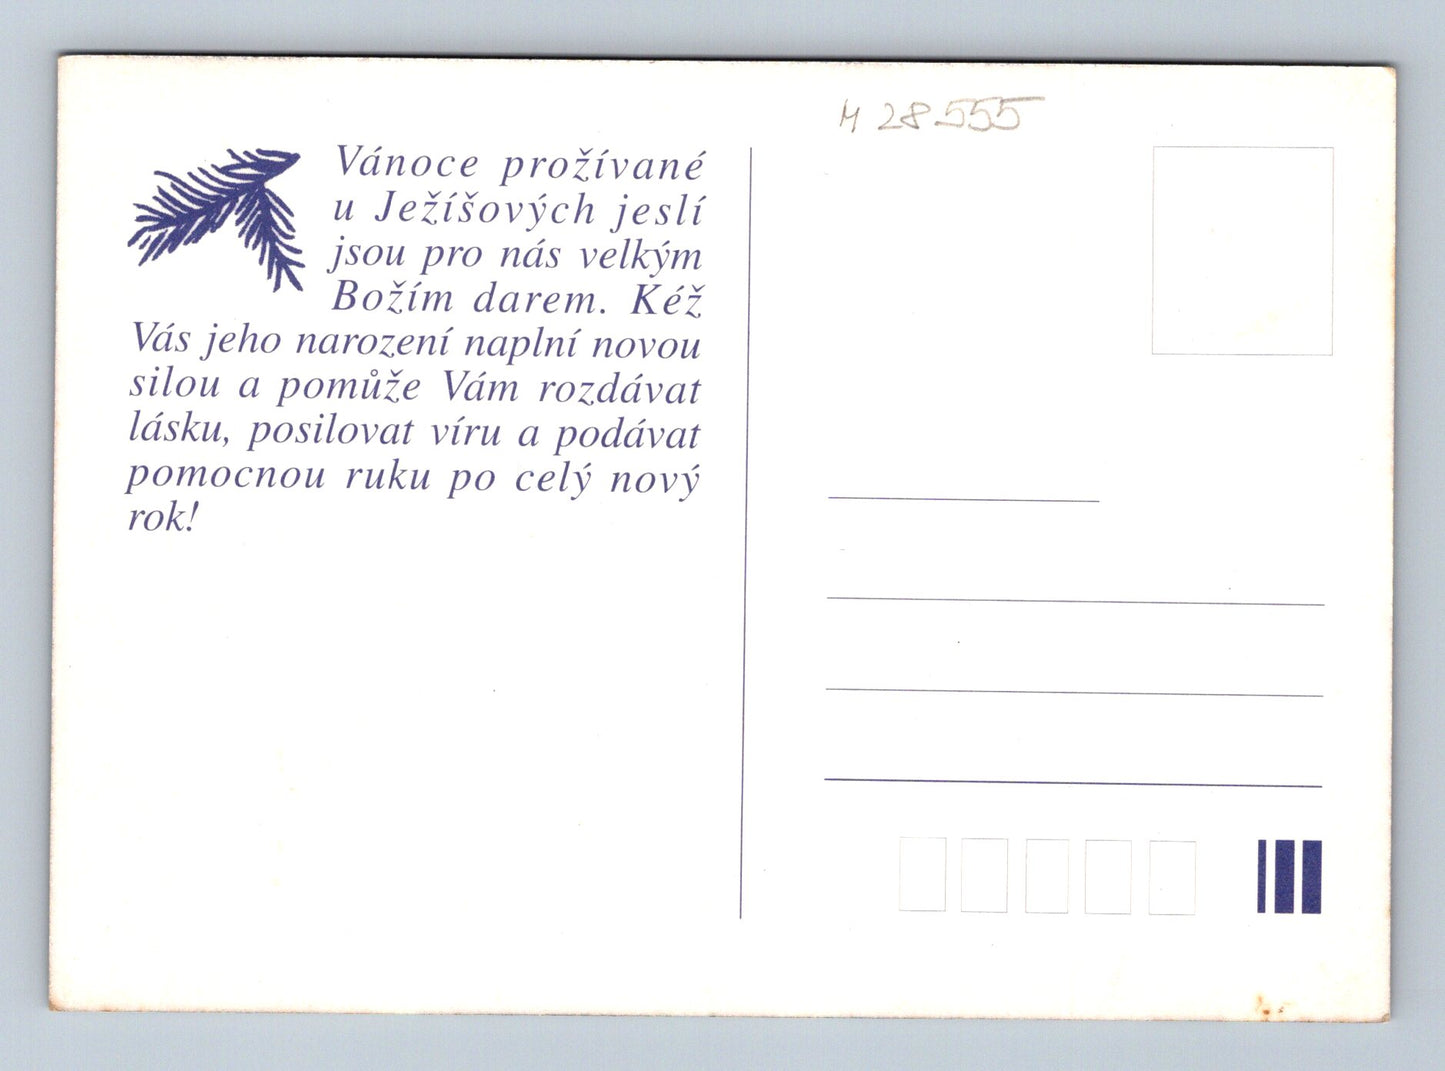 M 28555
Vánoce prožívané
u Ježíšových jeslí
jsou pro nás velkým
Božím darem. Kéž
Vás jeho narození naplní novou
silou a pomůže Vám rozdávat
lásku, posilovat víru a podávat
pomocnou ruku po celý nový
rok!